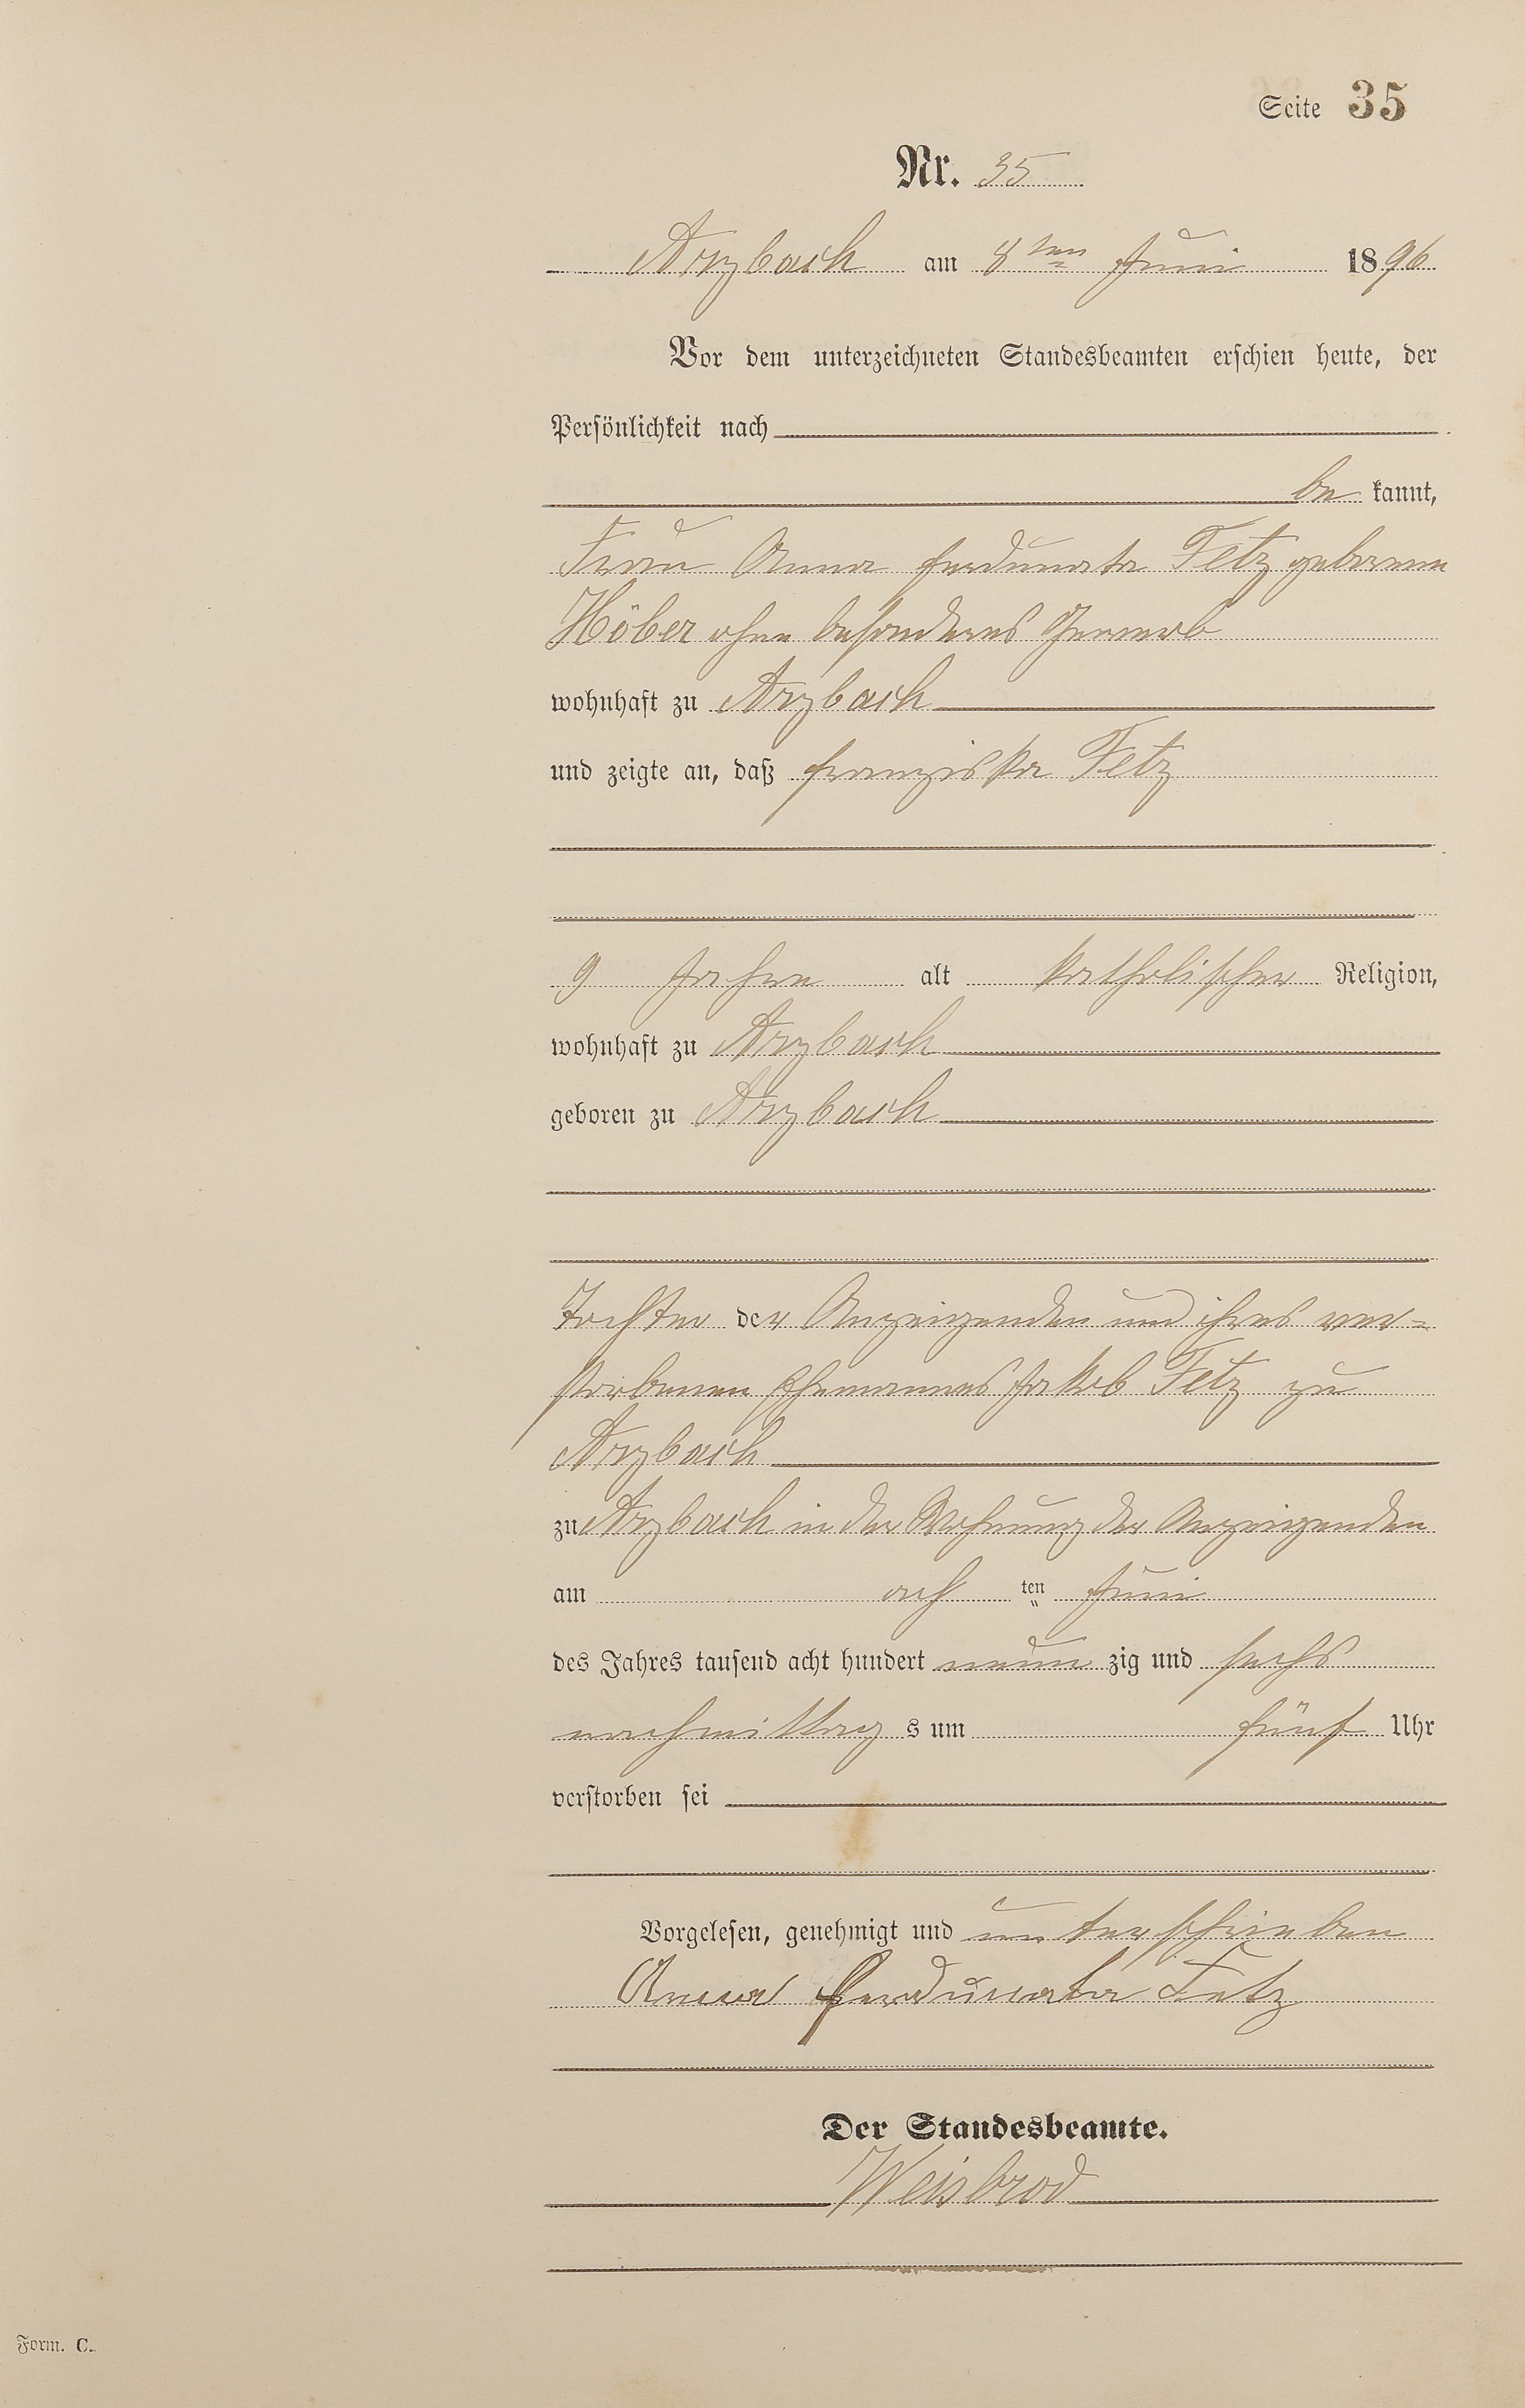 Seite 35
Nr. 35
Arzbach am 8ten Juni 1896
Vor dem unterzeichneten Standesbeamten erschien heute, der
Persönlichkeit nach
be kannt,
Frau Anna Ferdunata Fetz geborene
Höber ohne besonderes Gewerb
wohnhaft zu Arzbach
und zeigte an, daß Franziska Fetz
9 Jahre alt katholischer Religion,
wohnhaft zu Arzbach
geboren zu Arzbach
Tochter der Anzeigenden und ihres ver=
storbenen Ehemannes Jakob Fetz zu
Arzbach
zu Arzbach in der Wohnung der Anzeigenden
am ach ten Juni
des Jahres tausend acht hundert neun zig und sechs
nachmittag s um fünf Uhr
verstorben sei
Vorgelesen, genehmigt und unterschrieben
Anna Ferdunata Fetz
Der Standesbeamte.
Weisbrod
Form. C.